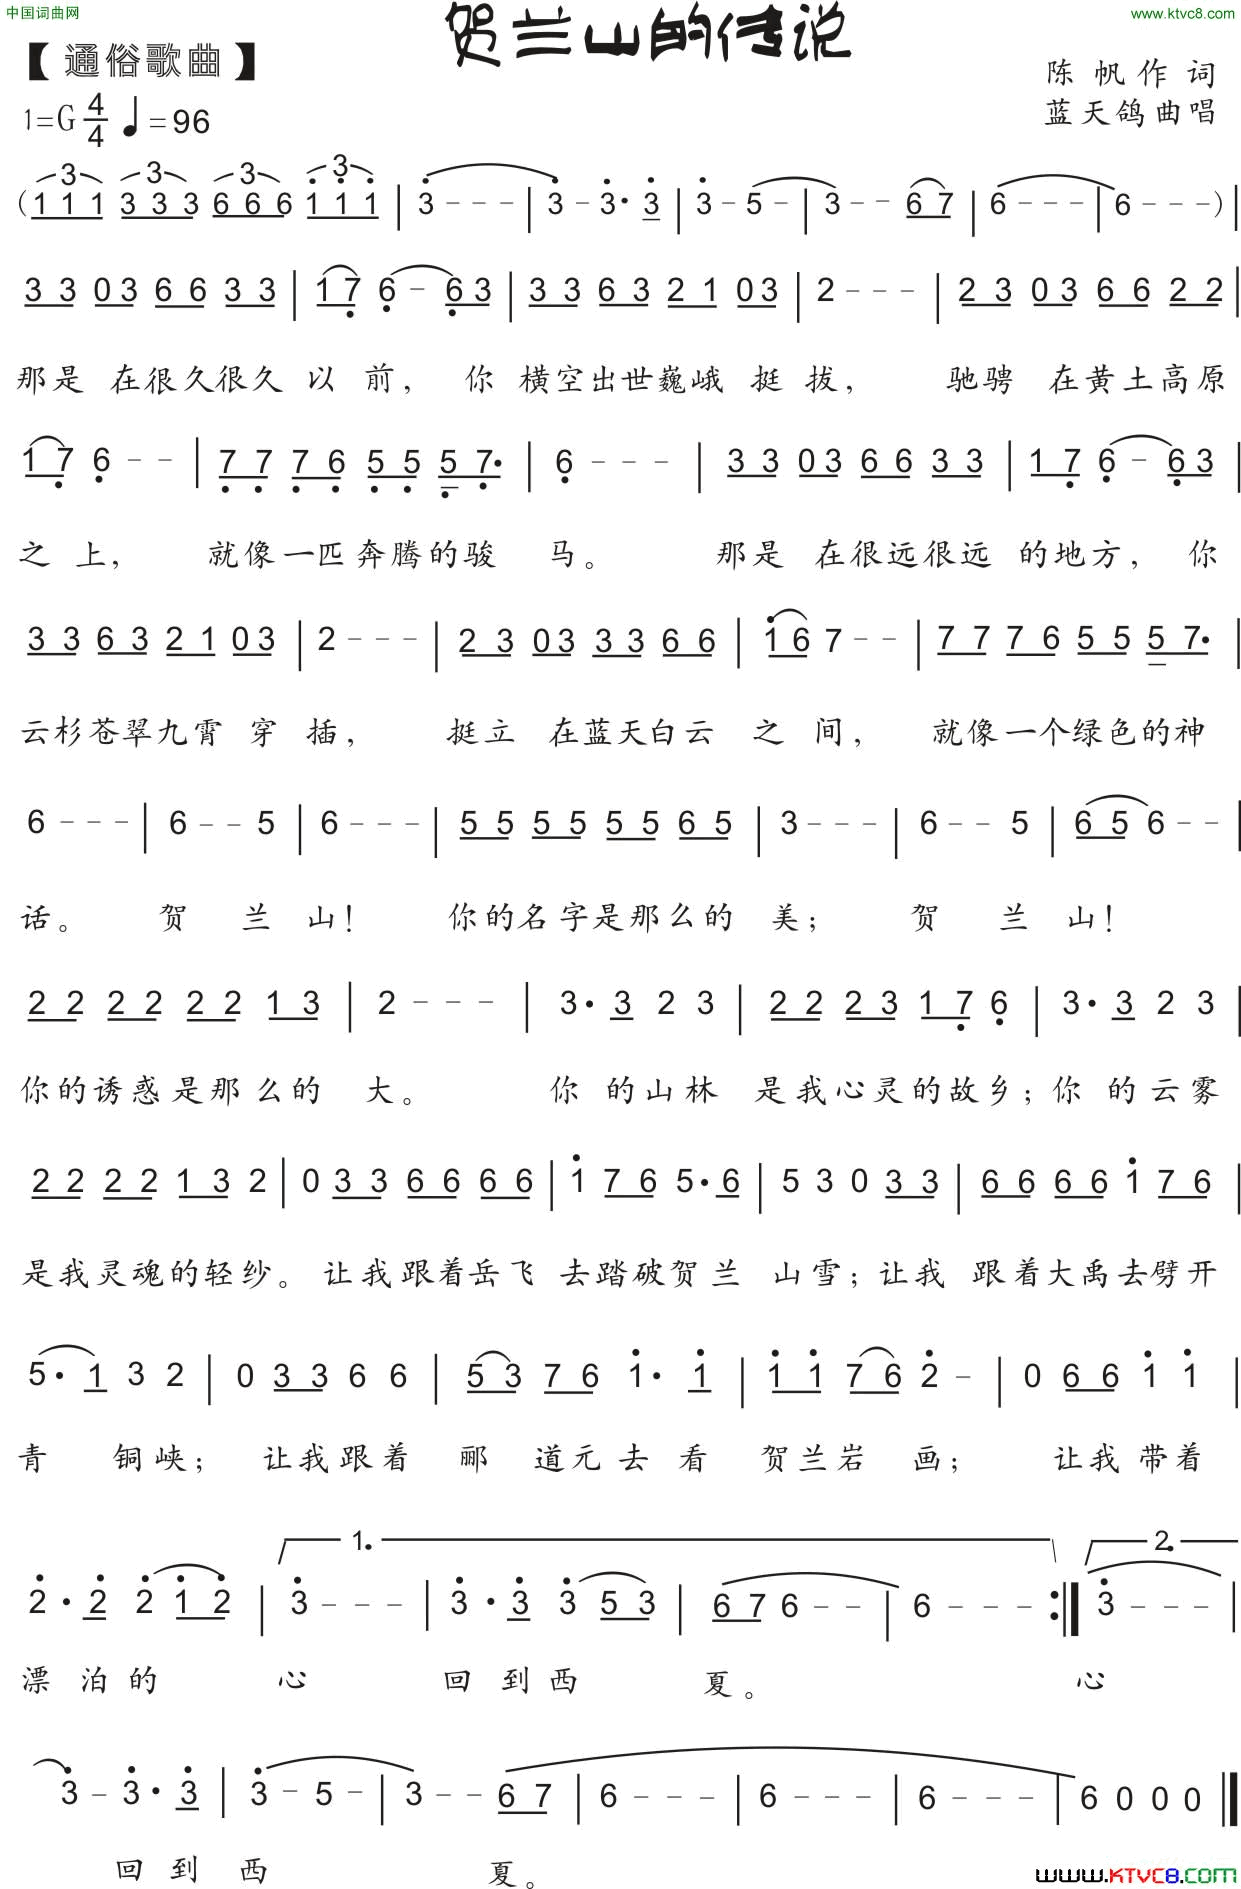 中国词曲网
www.ktvc8.com
贺兰山的传说
【通俗歌曲】
陈帆作词
1=G 4/4 ♩=96
蓝天鸽曲唱
(1 1 1 3 3 3 6 6 6 1 1 1 | 3 - - - | 3 - 3· 3 | 3 - 5 - | 3 - - 6 7 | 6 - - - | 6 - - - ) |
3 3 0 3 6 6 3 3 | 1 7 6 - 6 3 | 3 3 6 3 2 1 0 3 | 2 - - - | 2 3 0 3 6 6 2 2 |
那是 在很久很久 以 前， 你 横空出世巍峨 挺 拔， 驰骋 在黄土高原
1 7 6 - - | 7 7 7 6 5 5 5 7· | 6 - - - | 3 3 0 3 6 6 3 3 | 1 7 6 - 6 3 |
之 上， 就像一匹奔腾的骏 马。 那是 在很远很远 的地方， 你
3 3 6 3 2 1 0 3 | 2 - - - | 2 3 0 3 3 3 6 6 | 1 6 7 - - | 7 7 7 6 5 5 5 7· |
云杉苍翠九霄 穿 插， 挺立 在蓝天白云 之 间， 就像一个绿色的神
6 - - - | 6 - - 5 | 6 - - - | 5 5 5 5 5 5 6 5 | 3 - - - | 6 - - 5 | 6 5 6 - - |
话。 贺 兰 山！ 你的名字是那么的 美； 贺 兰 山！
2 2 2 2 2 2 1 3 | 2 - - - | 3· 3 2 3 | 2 2 2 3 1 7 6 | 3· 3 2 3 |
你的诱惑是那么的 大。 你 的山林 是我心灵的故乡；你 的云雾
2 2 2 2 1 3 2 | 0 3 3 6 6 6 6 | 1 7 6 5· 6 | 5 3 0 3 3 | 6 6 6 6 1 7 6 |
是我灵魂的轻纱。 让我跟着岳飞 去踏破贺兰 山雪；让我 跟着大禹去劈开
5· 1 3 2 | 0 3 3 6 6 | 5 3 7 6 1· 1 | 1 1 7 6 2 - | 0 6 6 1 1 |
青 铜峡； 让我跟着 郦 道元去看 贺兰岩 画； 让我带着
1. 2.
2· 2 2 1 2 | 3 - - - | 3· 3 3 5 3 | 6 7 6 - - | 6 - - - :| 3 - - - |
漂泊的 心 回到西 夏。 心
3 - 3· 3 | 3 - 5 - | 3 - - 6 7 | 6 - - - | 6 - - - | 6 - - - | 6 0 0 0 ||
回到西 夏。
www.KTVC8.com